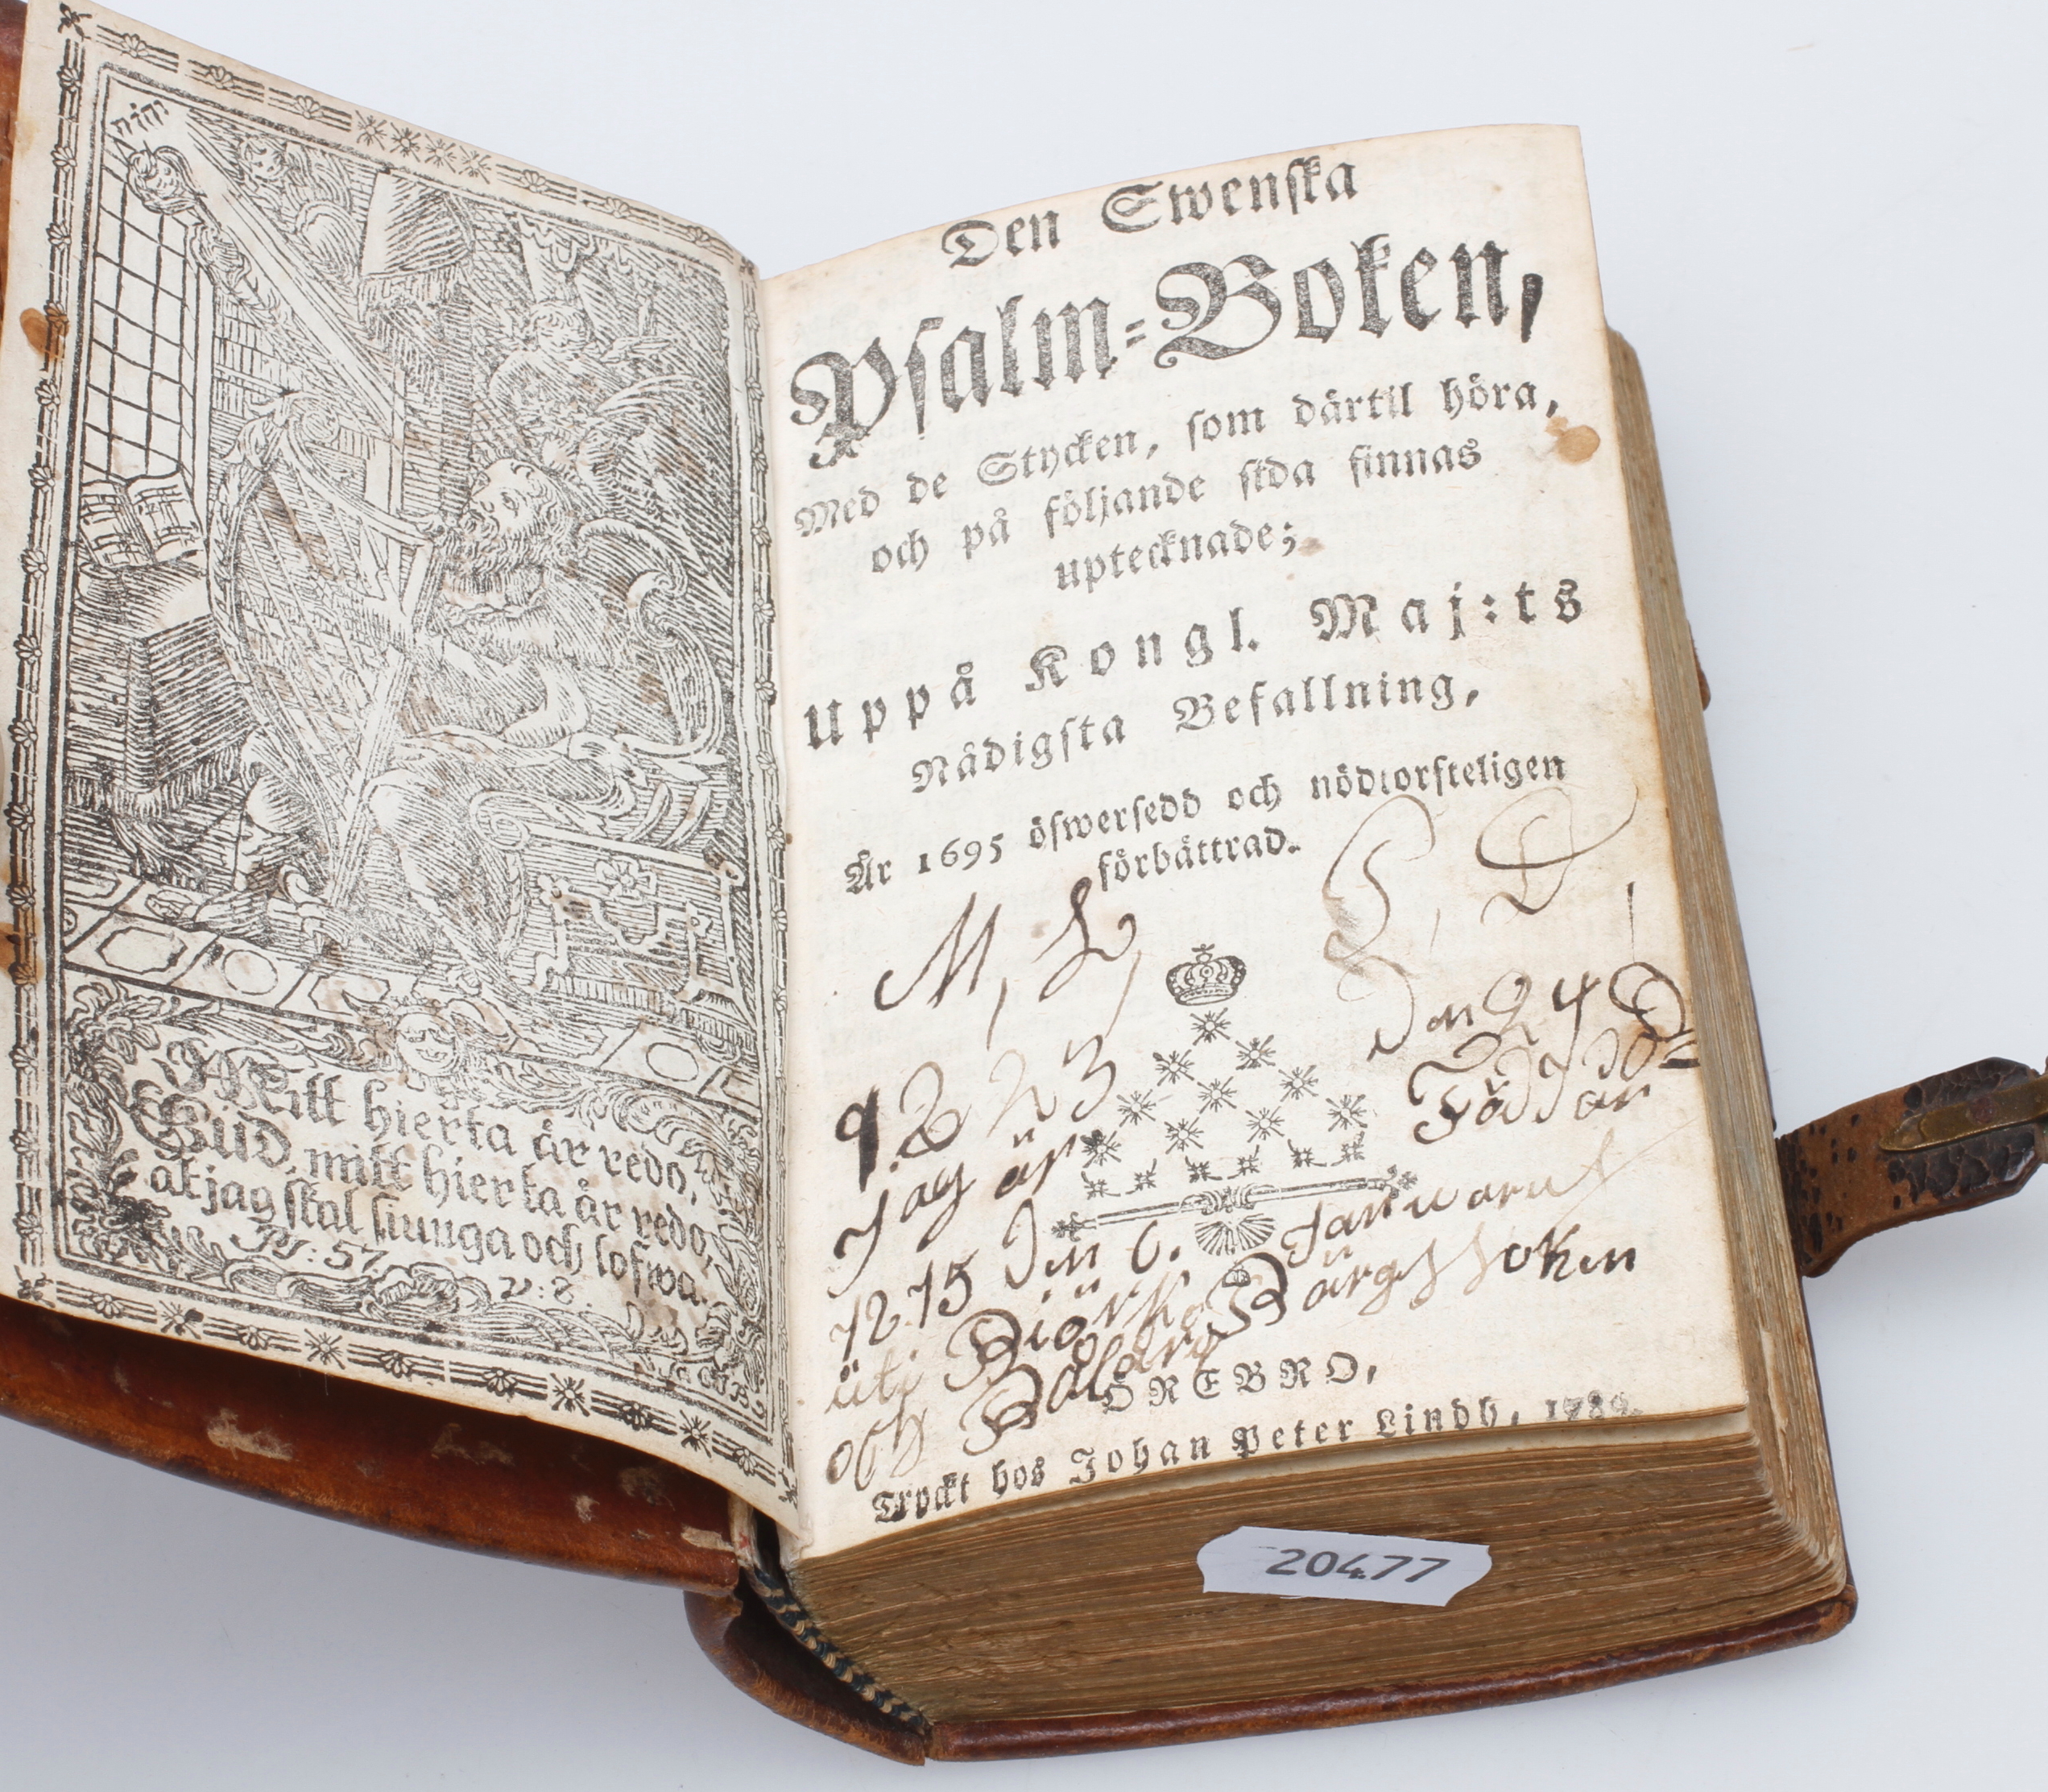 יהוה
Mitt hierta är redo,
Gud, mitt hierta är redo,
at jag skal siunga och lofwa.
Ps: 57
v: 8.
Den Swenska
Psalm-Boken,
Med de Stycken, som därtil höra,
och på följande sida finnas
uptecknade;
Uppå Kongl. Maj:ts
Nådigsta Befallning,
År 1695 öfwersedd och nödtorfteligen
förbättrad.
M, L, L, D,
Jag är Född är
Den 6. Januarus
uti Biörke Bärgs soken
och
ÖREBRO,
Tryckt hos Johan Peter Lindh, 178
20477